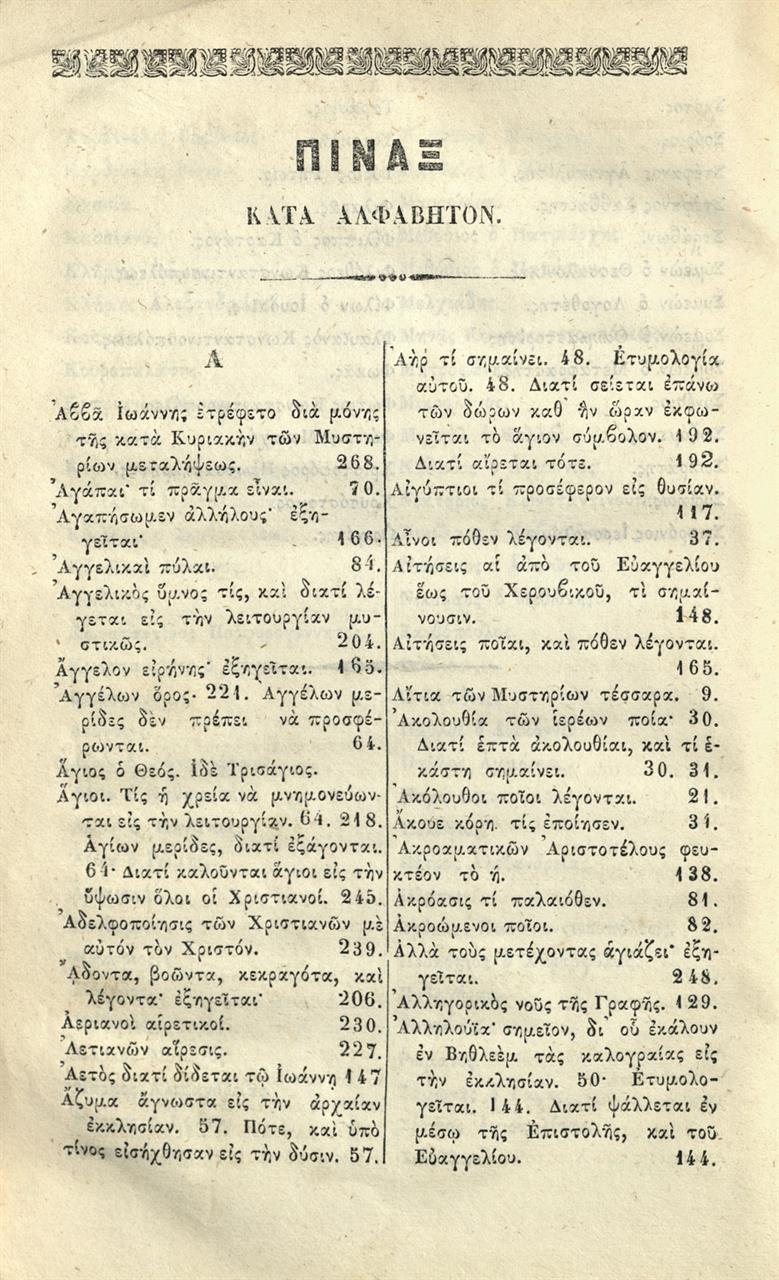 ΠΙΝΑΞ
ΚΑΤΑ ΑΛΦΑΒΗΤΟΝ.
Α
Ἀββᾶ Ἰωάννης ἐτρέφετο διὰ μόνης
τῆς κατὰ Κυριακὴν τῶν Μυστη-
ρίων μεταλήψεως. 268.
Ἀγάπαι· τί πρᾶγμα εἶναι. 70.
Ἀγαπήσωμεν ἀλλήλους· ἐξη-
γεῖται· 166.
Ἀγγελικαὶ πύλαι. 84.
Ἀγγελικὸς ὕμνος τίς, καὶ διατί λέ-
γεται εἰς τὴν λειτουργίαν μυ-
στικῶς. 204.
Ἄγγελον εἰρήνης· ἐξηγεῖται. 165.
Ἀγγέλων ὄρος· 221. Ἀγγέλων με-
ρίδες δὲν πρέπει νὰ προσφέ-
ρωνται. 64.
Ἅγιος ὁ Θεός. ἰδὲ Τρισάγιος.
Ἅγιοι. Τίς ἡ χρεία νὰ μνημονεύων-
ται εἰς τὴν λειτουργίαν. 64. 218.
Ἁγίων μερίδες, διατί ἐξάγονται.
64· Διατί καλοῦνται ἅγιοι εἰς τὴν
ὕψωσιν ὅλοι οἱ Χριστιανοί. 245.
Ἀδελφοποίησις τῶν Χριστιανῶν μὲ
αὐτόν τὸν Χριστόν. 239.
ᾌδοντα, βοῶντα, κεκραγότα, καὶ
λέγοντα· ἐξηγεῖται· 206.
Ἀεριανοὶ αἱρετικοί. 230.
Ἀετιανῶν αἵρεσις. 227.
Ἀετὸς διατί δίδεται τῷ Ἰωάννῃ 147
Ἄζυμα ἄγνωστα εἰς τὴν ἀρχαίαν
ἐκκλησίαν. 57. Πότε, καὶ ὑπὸ
τίνος εἰσήχθησαν εἰς τὴν δύσιν. 57.
Ἀὴρ τί σημαίνει. 48. Ἐτυμολογία
αὐτοῦ. 48. Διατί σείεται ἐπάνω
τῶν δώρων καθ' ἣν ὥραν ἐκφω-
νεῖται τὸ ἅγιον σύμβολον. 192.
Διατί αἴρεται τότε. 192.
Αἰγύπτιοι τί προσέφερον εἰς θυσίαν.
117.
Αἶνοι πόθεν λέγονται. 37.
Αἰτήσεις αἱ ἀπὸ τοῦ Εὐαγγελίου
ἕως τοῦ Χερουβικοῦ, τὶ σημαί-
νουσιν. 148.
Αἰτήσεις ποῖαι, καὶ πόθεν λέγονται.
165.
Αἴτια τῶν Μυστηρίων τέσσαρα. 9.
Ἀκολουθία τῶν ἱερέων ποία· 30.
Διατί ἑπτὰ ἀκολουθίαι, καὶ τί ἑ-
κάστη σημαίνει. 30. 31.
Ἀκόλουθοι ποῖοι λέγονται. 21.
Ἄκουε κόρη. τίς ἐποίησεν. 31.
Ἀκροαματικῶν Ἀριστοτέλους φευ-
κτέον τὸ ή. 138.
Ἀκρόασις τί παλαιόθεν. 81.
Ἀκροώμενοι ποῖοι. 82.
Ἀλλὰ τοὺς μετέχοντας ἁγιάζει· ἐξη-
γεῖται. 248.
Ἀλληγορικὸς νοῦς τῆς Γραφῆς. 129.
Ἀλληλούϊα· σημεῖον, δι' οὗ ἐκάλουν
ἐν Βηθλεὲμ τὰς καλογραίας εἰς
τὴν ἐκκλησίαν. 50· Ἐτυμολο-
γεῖται. 144. Διατί ψάλλεται ἐν
μέσῳ τῆς Ἐπιστολῆς, καὶ τοῦ
Εὐαγγελίου. 144.